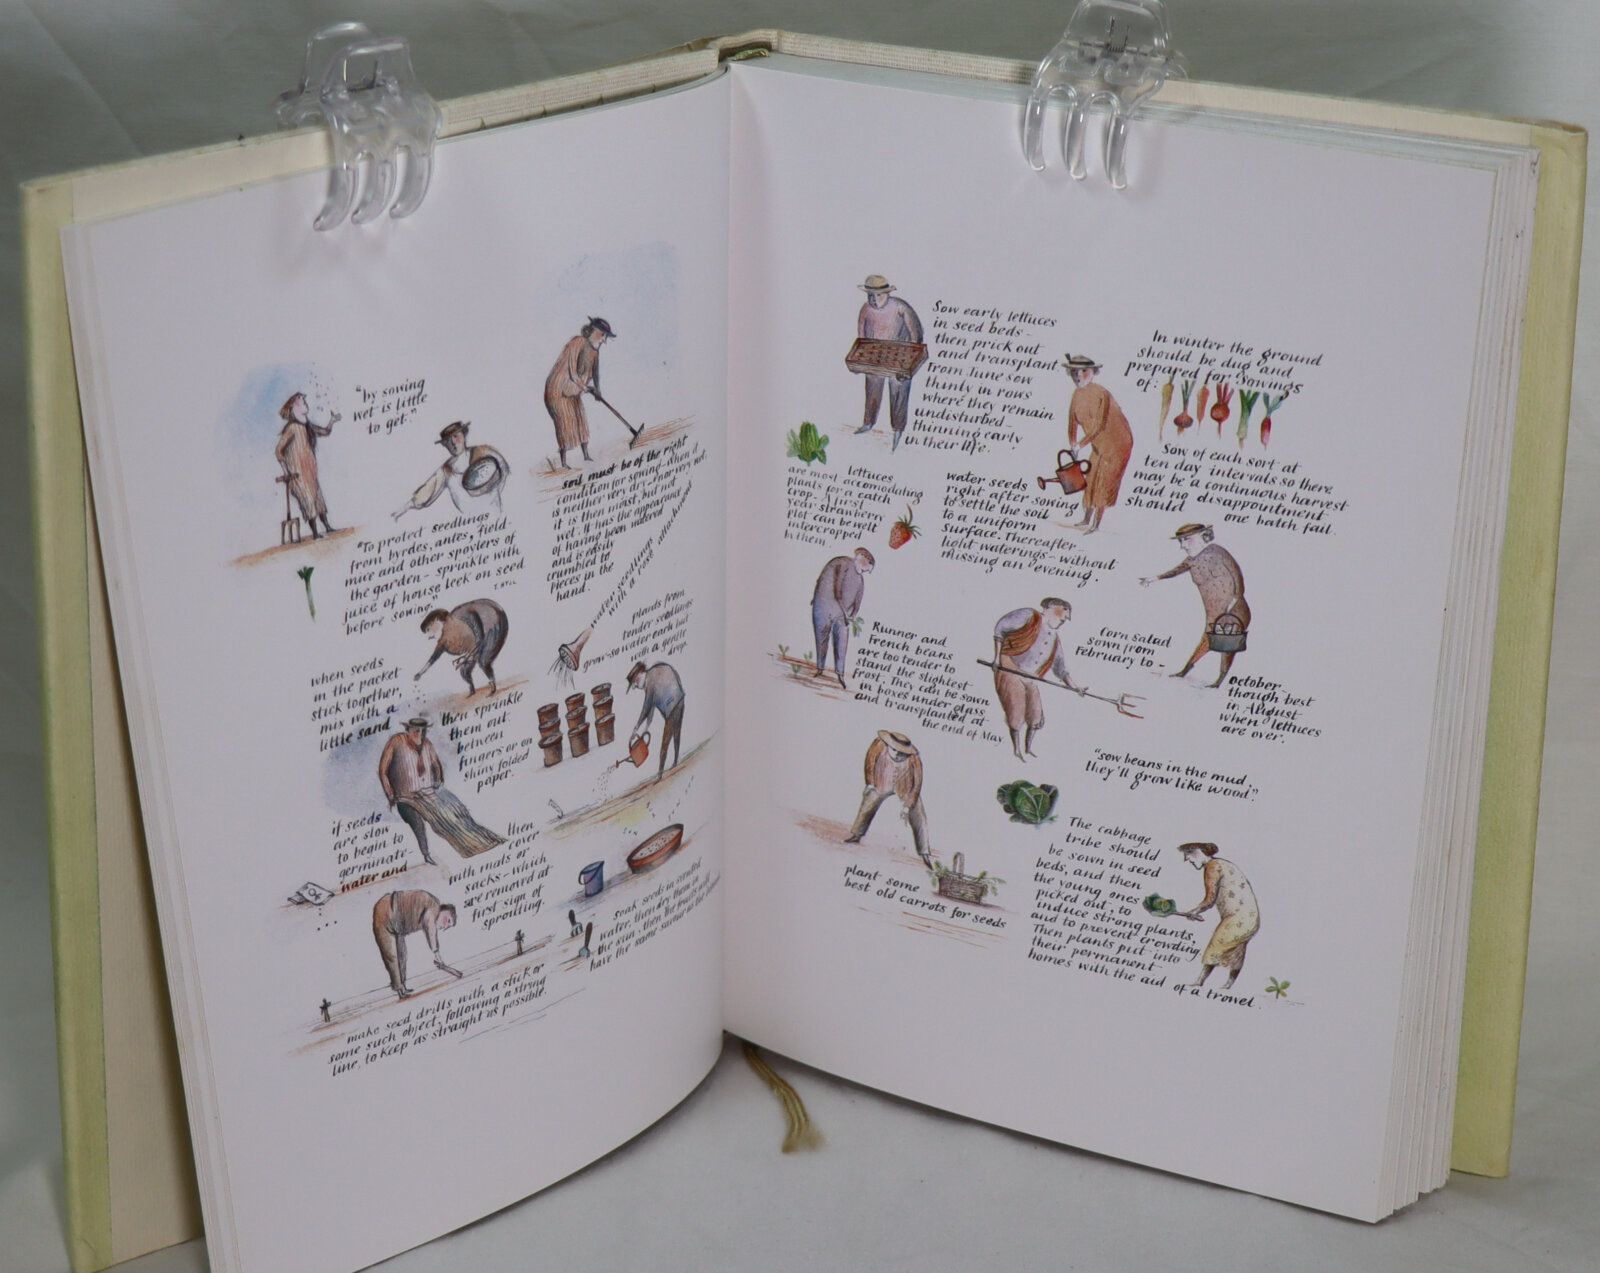 "by sowing
wet is little
to get."
soil must be of the right
condition for sowing - when it
is neither very dry - nor very wet,
it is then moist, but not
wet. It has the appearance
of having been watered
and is easily
crumbled to
pieces in the
hand.
"To protect seedlings
from byrdes, antes, field-
mice and other spoylers of
the garden - sprinkle with
juice of house leek on seed
before sowing."
T. HYLL
water seedlings
with a rose attachment
plants from
tender seedlings
grow - so water each but
with a gentle
drop.
when seeds
in the packet
stick together,
mix with a
little sand
then sprinkle
them out
between
fingers or on
shiny folded
paper.
if seeds
are slow
to begin to
germinate -
water and
then
cover
with mats or
sacks - which
are removed at
first sign of
sprouting.
soak seeds in scented
water, then dry them in
the sun - then the fruits will
have the same savour as the
make seed drills with a stick or
some such object, following a string
line, to keep as straight as possible.
Sow early lettuces
in seed beds -
then prick out
and transplant
from June sow
thinly in rows
where they remain
undisturbed -
thinning early
in their life.
In winter the ground
should be dug and
prepared for sowings
of:
Sow of each sort at
ten day intervals so there
may be a continuous harvest
and no disappointment
should one batch fail.
lettuces
are most accomodating
plants for a catch
crop - A first
year strawberry
plot can be well
intercropped
by them.
water seeds
right after sowing
to settle the soil
to a uniform
surface. Thereafter -
light waterings - without
missing an evening.
Runner and
French beans
are too tender to
stand the slightest
frost. They can be sown
in boxes under glass
and transplanted at
the end of May.
Corn salad
sown from
February to -
october,
though best
in August
when lettuces
are over.
"sow beans in the mud,
they'll grow like wood."
plant some
best old carrots for seeds
The cabbage
tribe should
be sown in seed
beds, and then
the young ones
picked out, to
induce strong plants,
and to prevent crowding.
Then plants put into
their permanent
homes with the aid of a trowel.